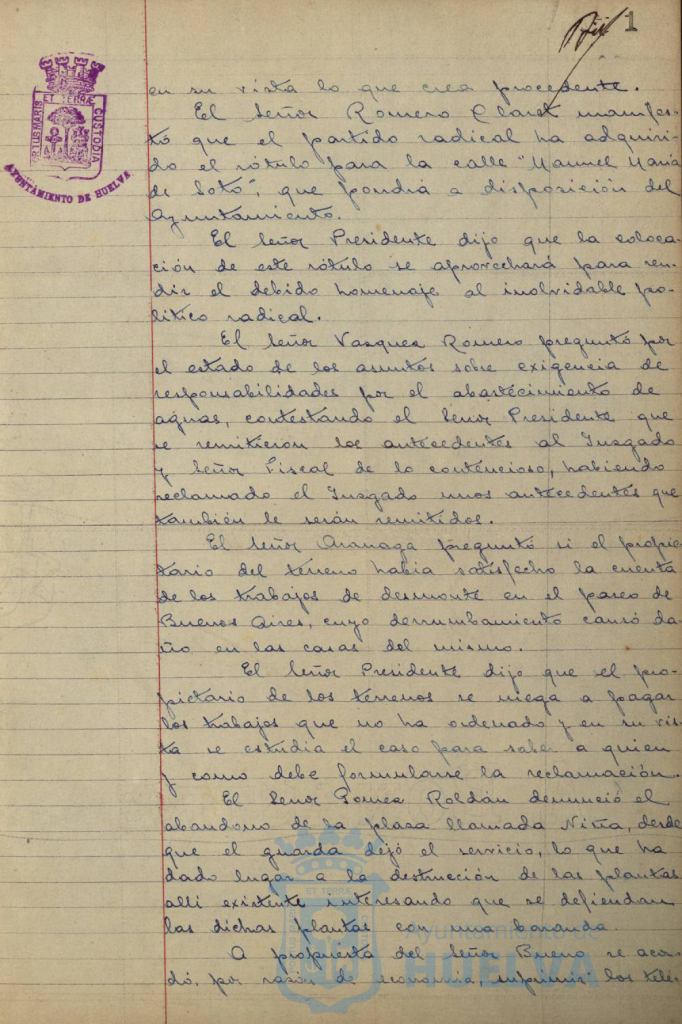 1
PORTUS MARIS ET TERRÆ CUSTODIA
AYUNTAMIENTO DE HUELVA
en su vista lo que crea procedente.
El Señor Romero Claret manifes-
tó que el partido radical ha adquiri-
do el rótulo para la calle "Manuel Maria
de Soto", que pondrá a disposición del
Ayuntamiento.
El Señor Presidente dijo que la coloca-
ación de este rótulo se aprovechará para ren-
dir el debido homenaje al inolvidable po-
litico radical.
El Señor Vasquez Romero preguntó por
el estado de los asuntos sobre exigencia de
responsabilidades por el abastecimiento de
aguas, contestando el Señor Presidente que
se remitieron los antecedentes al Juzgado
y Señor Fiscal de lo contencioso, habiendo
reclamado el Juzgado unos antecedentes que
también le serán remitidos.
El Señor Aranaga preguntó si el propie-
tario del terreno habia satisfecho la cuenta
de los trabajos de desmonte en el paseo de
Buenos Aires, cuyo derrumbamiento causó da-
ño en las casas del mismo.
El Señor Presidente dijo que el pro-
pietario de los terrenos se niega a pagar
los trabajos que no ha ordenado y en su vis-
ta se estudia el caso para saber a quien
y como debe formularse la reclamación.
El Señor Gomez Roldán denunció el
abandono de la plaza llamada Niña, desde
que el guarda dejó el servicio, lo que ha
dado lugar a la destrucción de las plantas
alli existente interesando que se defiendan
las dichas plantas con una baranda.
A propuesta del Señor Bueno se acor-
dó, por razón de economia, suprimir los telé-
ET TERRÆ
Ayuntamiento de
HUELVA